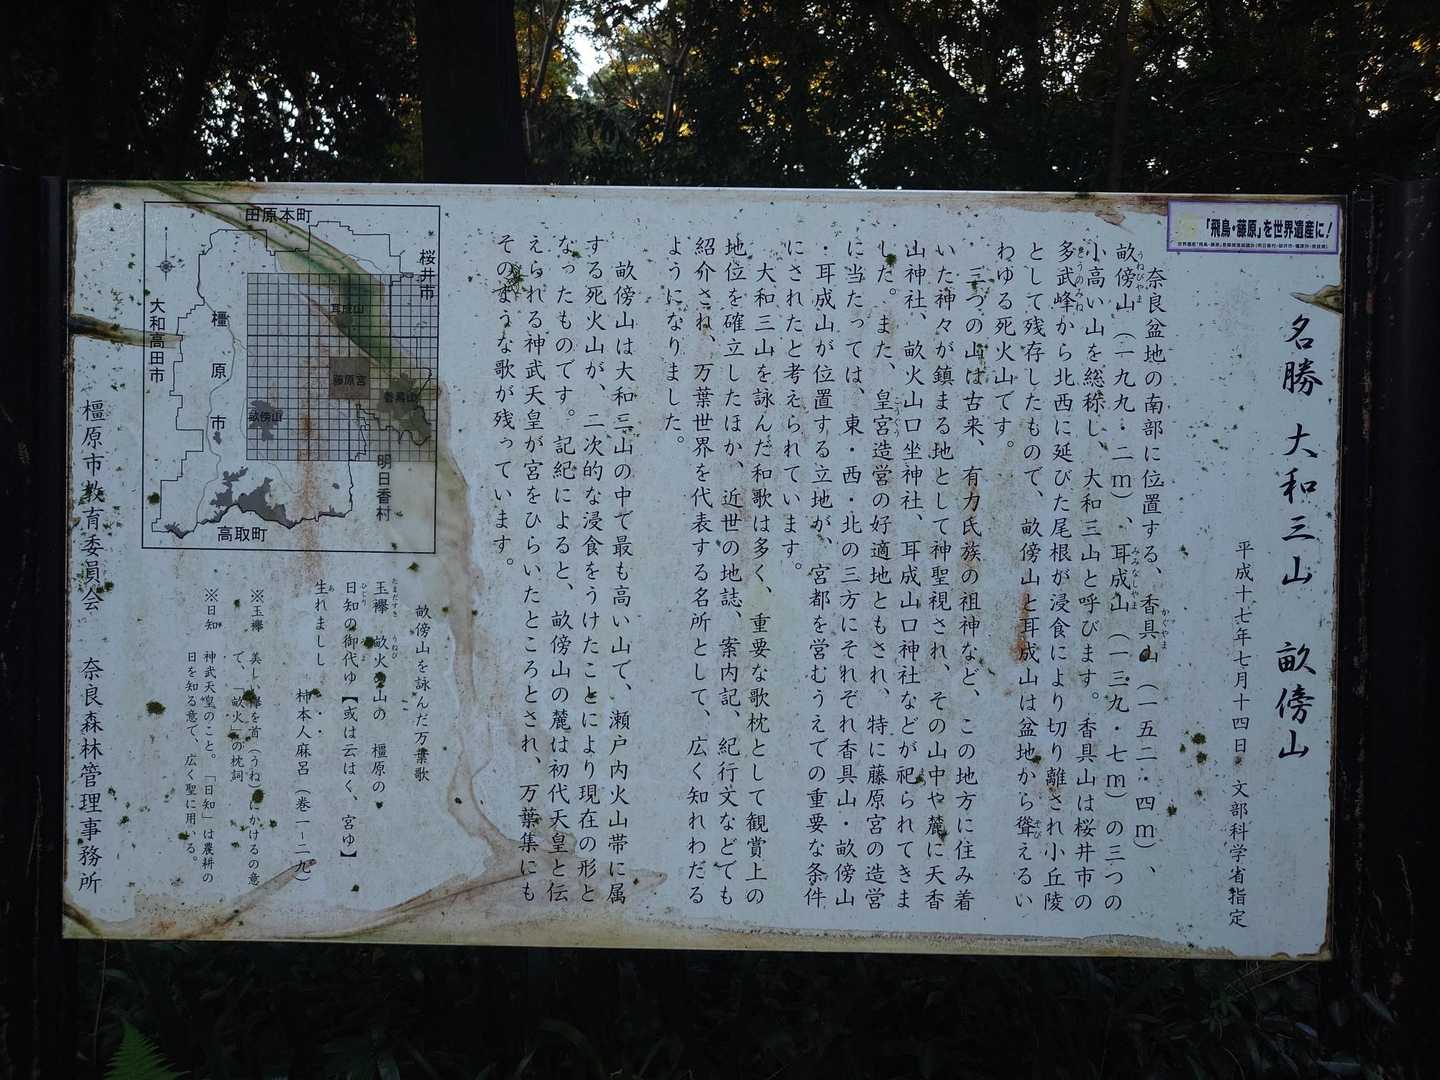 『飛鳥・藤原』を世界遺産に！
名勝 大和三山 畝傍山
平成十七年七月十四日 文部科学省指定
奈良盆地の南部に位置する、香具山（一五二・四ｍ）、
畝傍山（一九九・二ｍ）、耳成山（一三九・七ｍ）の三つの
小高い山を総称し、大和三山と呼びます。香具山は桜井市の
多武峰から北西に延びた尾根が浸食により切り離され小丘陵
として残存したもので、畝傍山と耳成山は盆地から聳えるい
わゆる死火山です。
三つの山は古来、有力氏族の祖神など、この地方に住み着
いた神々が鎮まる地として神聖視され、その山中や麓に天香
山神社、畝火山口坐神社、耳成山口神社などが祀られてきま
した。また、皇宮造営の好適地ともされ、特に藤原宮の造営
に当たっては、東・西・北の三方にそれぞれ香具山・畝傍山
・耳成山が位置する立地が、宮都を営むうえでの重要な条件
にされたと考えられています。
大和三山を詠んだ和歌は多く、重要な歌枕として観賞上の
地位を確立したほか、近世の地誌、案内記、紀行文などでも
紹介され、万葉世界を代表する名所として、広く知れわたる
ようになりました。
畝傍山は大和三山の中で最も高い山で、瀬戸内火山帯に属
する死火山が、二次的な浸食をうけたことにより現在の形と
なったものです。記紀によると、畝傍山の麓は初代天皇と伝
えられる神武天皇が宮をひらいたところとされ、万葉集にも
そのような歌が残っています。
畝傍山を詠んだ万葉歌
玉襷 畝火の山の 橿原の
日知の御代ゆ【或は云はく、宮ゆ】
生れましし・・・
柿本人麻呂（巻一−二九）
※玉襷 美しい襷を首（うね）にかけるの意
で、「畝火」の枕詞
※日知 神武天皇のこと。「日知」は農耕の
日を知る意で、広く聖に用いる。
田原本町
桜井市
大和高田市
橿原市
耳成山
藤原宮
香具山
畝傍山
明日香村
高取町
橿原市教育委員会 奈良森林管理事務所